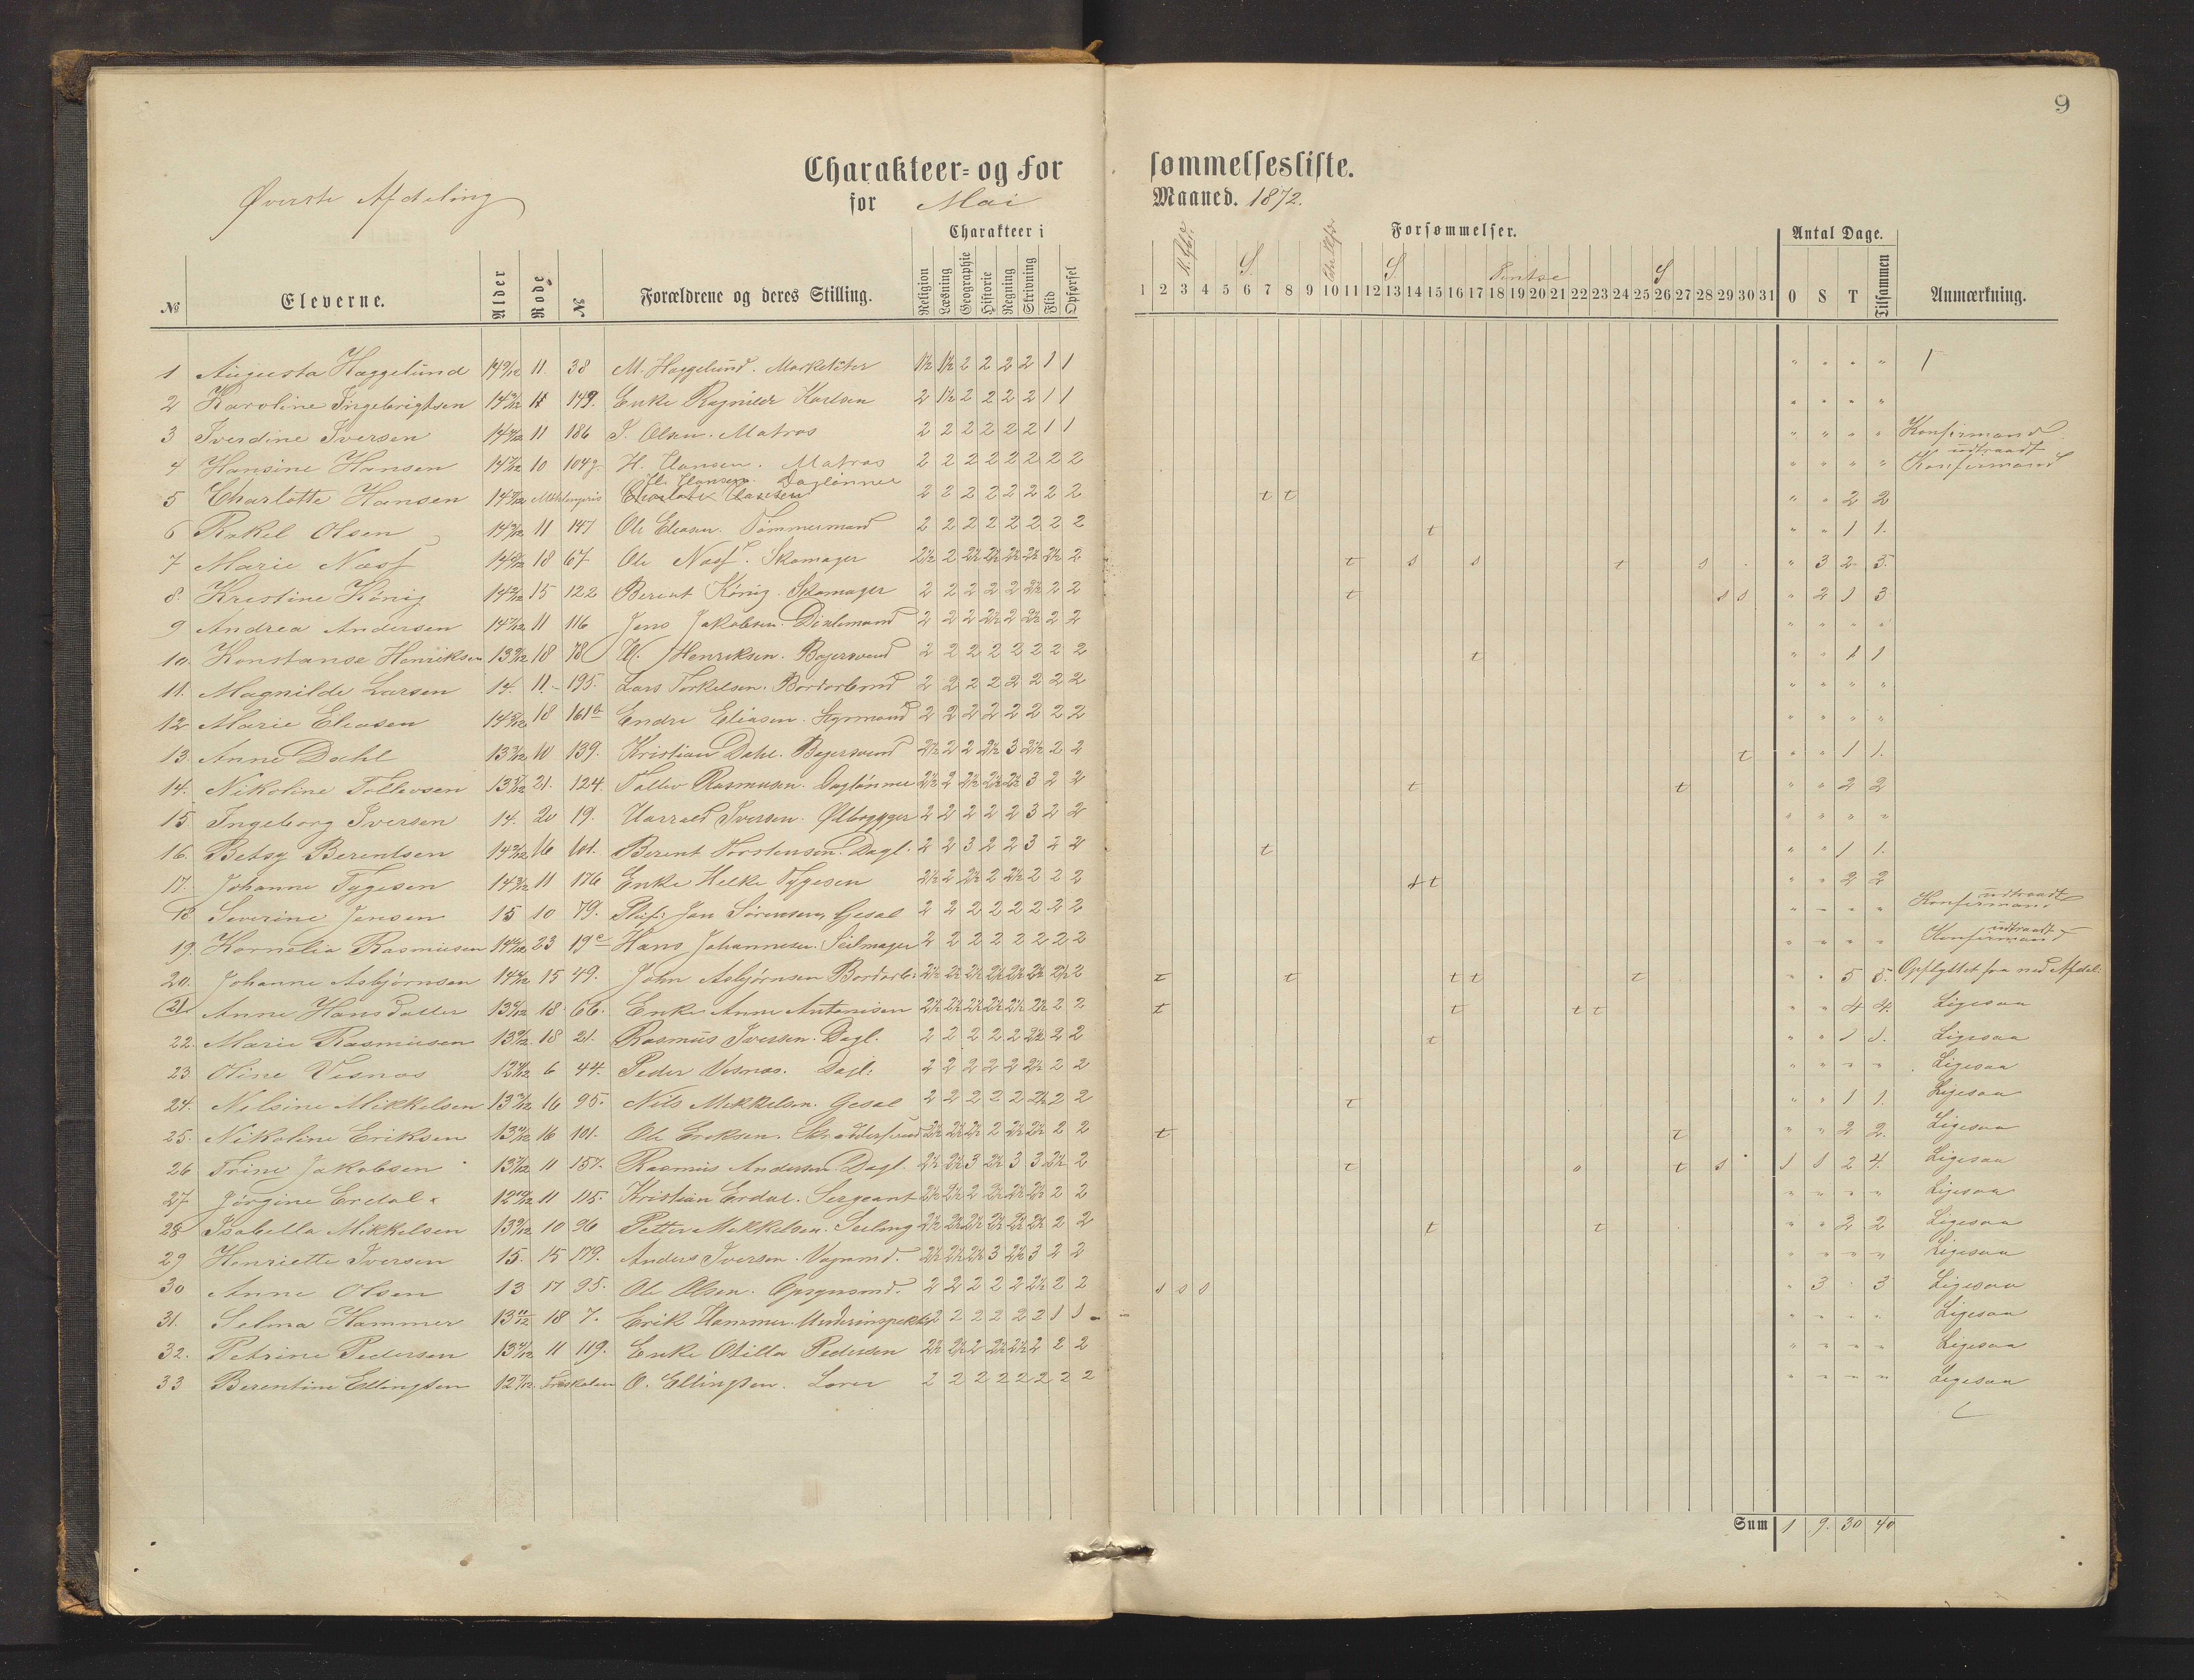 9
Charakteer- og Forsømmelsesliste.
Øverste Afdeling
for Mai Maaned. 1872.
Charakteer i Forsømmelser. Antal Dage.
S. S. Pintse S
№ Eleverne. Alder Rode № Forældrene og deres Stilling. Religion Læsning Geographie Historie Regning Skrivning Flid Opførsel 1 2 3 4 5 6 7 8 9 10 11 12 13 14 15 16 17 18 19 20 21 22 23 24 25 26 27 28 29 30 31 O S T Tilsammen Anmærkning.
1 Augusta Haggelund 11. 38 M. Haggelund. Marketæter 1½ 1½ 2 2 2 2 1 1 " " " "
2 Karoline Ingebrigtsen 11 149. Enke Ragnilde Karlsen 2 1½ 2 2 2 2 1 1 " " " "
3 Iverdine Iversen 11 186 I. Olsen. Matros 2 2 2 2 2 2 1 1 " " " " Konfirmand
4 Hansine Hansen 10 104 H. Hansen. Matros 2 2 2 2 2 2 2 2 " " " " Konfirmand udtraadt
5 Charlotte Hansen Hansen Daglønner 2 2 2 2 2 2 2 2 t t " " 2 2
6 Rakel Olsen 11 147 Ole Eliasen. Tømmermand 2 2 2 2 2 2 2 2 t " " 1 1.
7 Marie Næss 18 67 Ole Næss. Skomager 2½ 2 2½ 2½ 2½ 2½ 2½ 2 t s s t s " 3 2 5.
8. Kristine König 15 122 Berent König. Skomager 2 2 2 2 2 2½ 2 2 t s s " 2 1 3
9 Andrea Andersen 11 116 Jens Jakobsen. 2 2 2 2½ 2 2½ 2 2 " " " "
10. Konstanse Henriksen 18 78 H. Henriksen. Bøjersvend 2 2 2 2 2 2 2 2 t " " 1 1
11. Magnilde Larsen 14. 11. 195. Lars Torkelsen. 2 2 2 2 2 2 2 2 " " " "
12 Marie Eliasen 18 161b Endre Eliasen. Styrmand 2 2 2 2 2 2 2 2 " " " "
13. Anne Dahl 10 139. Kristian Dahl. Bøjersvend 2½ 2 2 2½ 3 2½ 2 2 t " " 1 1.
14. Nikoline Tollevsen 21. 124. Tollev Rasmusen. Daglønner 2½ 2 2½ 2½ 2½ 3 2 2 t t " " 2 2
15 Ingeborg Iversen 14. 20 19. Harrald Iversen. Ølbrygger 2 2 2 2 2 3 2 2 " " " "
16. Betsy Berentsen 16 101. Berent Torstensen. Dagl. 2 2 3 2 2 3 2 2 t " " 1 1.
17. Johanne Tygesen 11 176 Enke Helke Tygesen 2½ 2 2½ 2 2½ 2 2 2 t t " " 2 2
18 Severine Jensen 15 10 79. Jan Sørensen, Gesel 2 2 2 2 2 2 2 2 " " " " Konfirmand udtraadt
19. Kornelia Rasmusen 23 19c Hans Johannesen. Seilmager 2 2 2 2 2 2 2 2 " " " " Konfirmand udtraadt
20. Johanne Asbjørnsen 15 49. John Asbjørnsen 2½ 2½ 2½ 2½ 2½ 2½ 2½ 2 t t t t t " " 5 5. Opflyttet fra ned Afdel:
21. Anne Hansdatter 18 66. Enke Anne Antonisen 2½ 2½ 2½ 2½ 2½ 2½ 2 2 t t t t " " 4 4. Ligesaa
22. Marie Rasmusen 18 21. Rasmus Iversen. Dagl. 2 2 2 2 2 2½ 2 2 t " " 1 1. Ligesaa
23. Oline Vesnæs 6 44. Peder Vesnæs. Dagl. 2 2 2 2 2 2½ 2 2 " " " " Ligesaa
24. Nilsine Mikkelsen 16 95. Nils Mikkelsen. Gesel 2 2 2 2 2 2½ 2 2 t " " 1 1. Ligesaa
25. Nikoline Eriksen 16 101. Ole Eriksen. 2½ 2½ 2½ 2 2½ 2½ 2 2 t t " " 2 2. Ligesaa
26 Trine Jakobsen 11 157. Rasmus Andersen. Dagl. 2½ 2½ 3 2½ 3 3 2½ 2 t o t s 1 1 2 4. Ligesaa
27 Jørgine Erdal 11 115. Kristian Erdal. Sergeant 2½ 2½ 2 2½ 2½ 2½ 2 2 " " " " Ligesaa
28 Isabella Mikkelsen 10 96 Petter Mikkelsen. 2½ 2½ 2½ 2½ 2½ 2½ 2 2 t t " " 2 2 Ligesaa
29 Henriette Iversen 15. 15 179. Anders Iversen. Vognmd. 2½ 2½ 2½ 3 2½ 3 2 2 " " " " Ligesaa
30 Anne Olsen 13 17 95. Ole Olsen. 2 2 2 2 2 2½ 2 2 s s s " 3 " 3 Ligesaa
31. Selma Hammer 18 7. Erik Hammer. Underinspektør 2 2 2 2 2 2 1 1 " " " " Ligesaa
32. Petrine Pedersen 11 119. Enke Otilla Pedersen 2½ 2½ 2 2½ 2½ 2 2 2 " " " " Ligesaa
33 Berentine Ellingsen Friskolen O. Ellingsen. Lærer 2 2 2 2 2 2 2 2 " " " " Ligesaa
Sum 1 9. 30 40